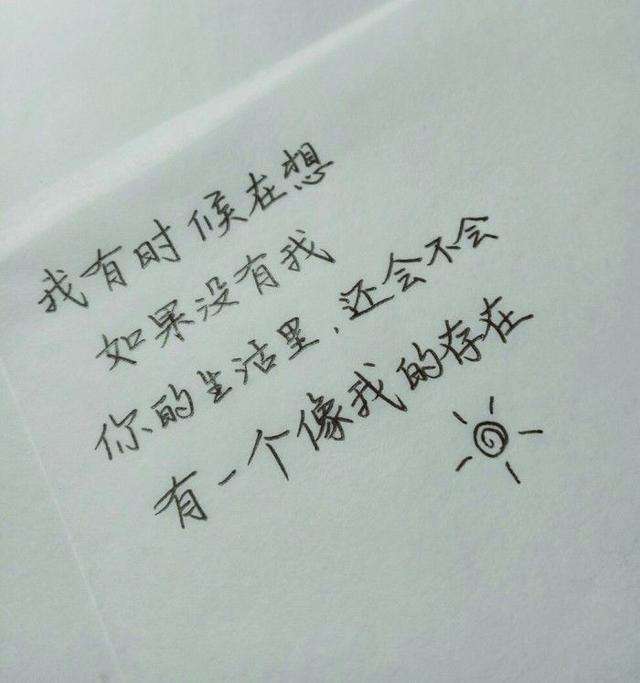 我有时候在想
如果没有我
你的生活里,还会不会
有一个像我的存在